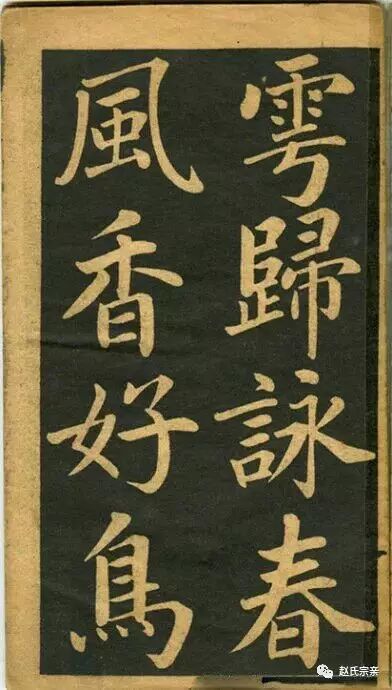 雩歸詠春
風香好鳥
赵氏宗亲